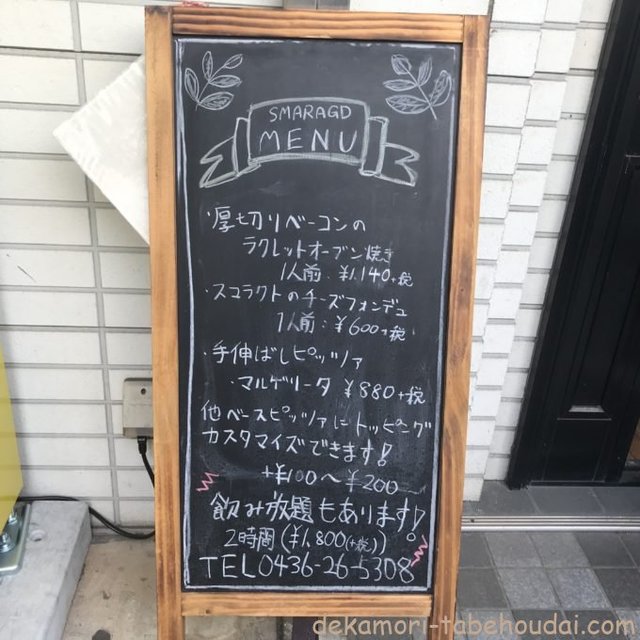 SMARAGD
MENU
・厚切りベーコンの
ラクレットオーブン焼き
1人前:¥1,140+税
・スマラクトのチーズフォンデュ
1人前:¥600+税
・手伸ばしピッツァ
・マルゲリータ ¥880+税
他ベースピッツァにトッピング
カスタマイズできます!
+¥100〜¥200
飲み放題もあります!
2時間(¥1,800(+税))
TEL0436-26-5308
dekamori-tabehoudai.com